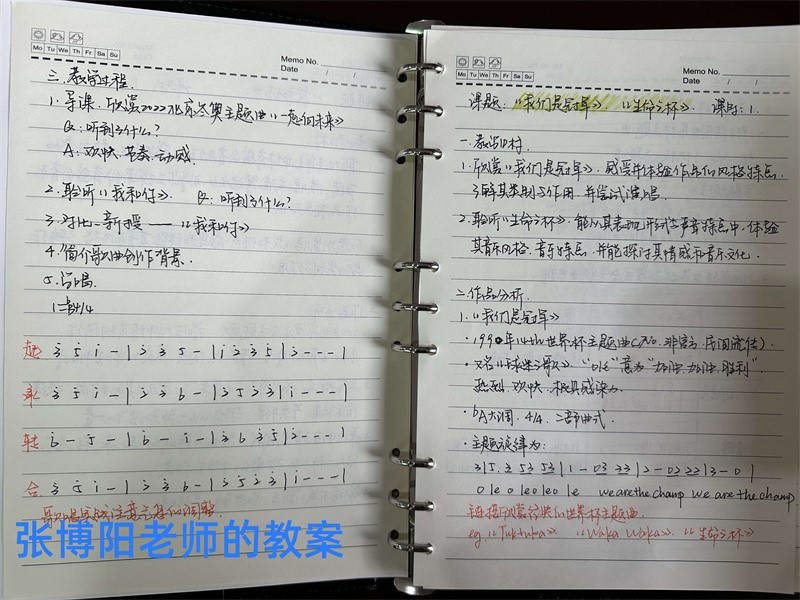 Mo Tu We Th Fr Sa Su
Memo No.
Date / /
三.教学过程
1.导课.欣赏2022北京冬奥主题曲《一起向未来》
Q:听到了什么?
A:欢快.节奏.动感.
2.聆听《我和你》. Q:听到了什么?
3.对比—新授——《我和你》
4.简介歌曲创作背景.
5.学唱.
1=♭A 4/4
起 3 5 1 - | 2 3 5 - | 1 2 3 5 | 2 - - - |
承 3 5 1 - | 2 3 6 - | 2 5 2 3 | 1 - - - |
转 6 - 5 - | 6 - 1 - | 3 6 3 5 | 2 - - - |
合 3 5 1 - | 2 3 6 - | 2 5 2 3 | 1 - - - |
张博阳老师的教案
Mo Tu We Th Fr Sa Su
Memo No.
Date / /
课题:《我们是冠军》.《生命之杯》. 课时:1.
一.教学目标
1.欣赏《我们是冠军》.感受并体验作品的风格特点.
了解其类别与作用.并尝试演唱.
2.聆听《生命之杯》.能从其表现形式与声音特点中.体验
其音乐风格.音乐特点.并能探讨其情感和音乐文化.
二.作品分析.
1.《我们是冠军》
·1990年14th世界杯主题曲(No.非官方.民间流传).
·又名《球迷之歌》."ole"意为"加油.加油.胜利".
热烈.欢快.极具感染力.
·♭A大调.4/4.二部曲式.
·主题旋律为:
3|5. 3 53 53|1 - 03 33|2 - 02 22|3 - 0|
0 le 0 leo leo le we are the champ we are the champ
链接:欣赏经典的世界杯主题曲.
eg.《Tukutuka》.《Waka Waka》.《生命之杯》